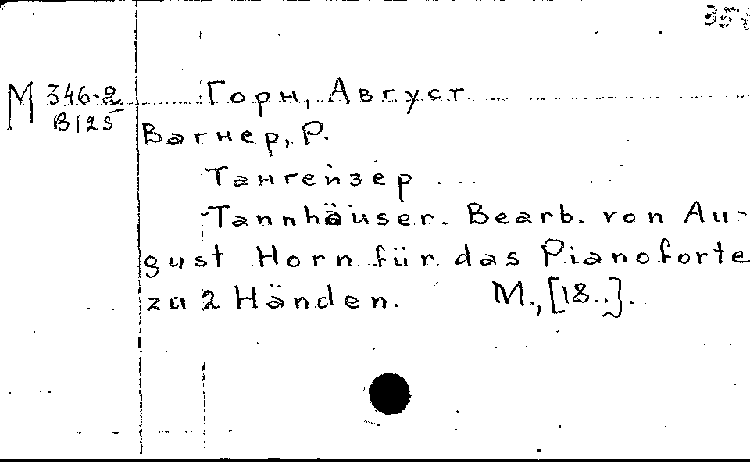 М 346-2
В125
Горн, Август
Вагнер, Р.
Тангейзер
Tannhäuser. Bearb. von Au-
gust Horn für das Pianoforte
zu 2 Händen. М., [18..].